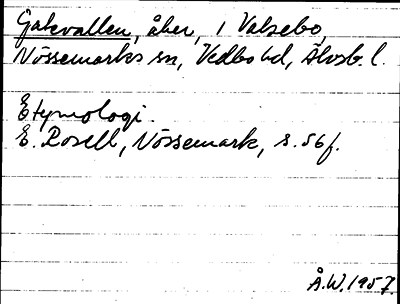 Gakvallen, åker, i Valsebo,
Nössemarks sn, Vedbo hd, Älvsb. l.
Etymologi.
E. Rosell, Nössemark, s. 56f.
Å.W. 1957.